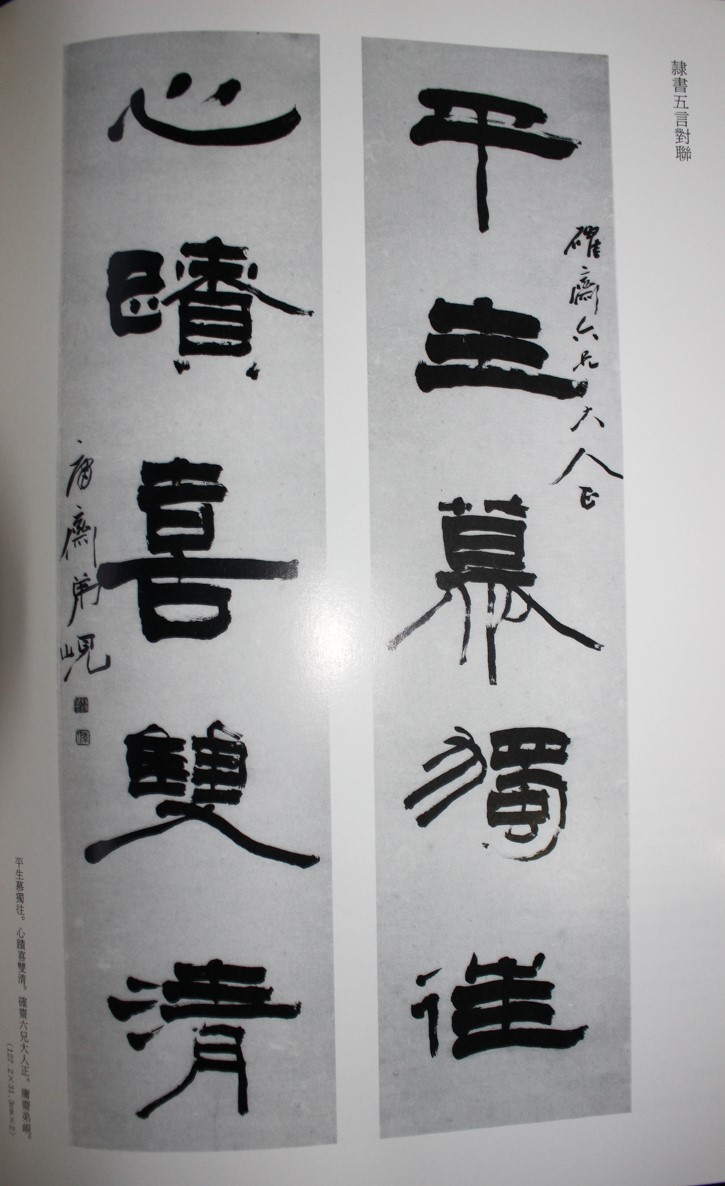 隷書五言對聯
平生慕獨往
確齋六兄大人正
心蹟喜雙清
庸齋弟峴
平生慕獨往。心蹟喜雙清。確齋六兄大人正。庸齋弟峴。
(127.2×31.3cm×2)